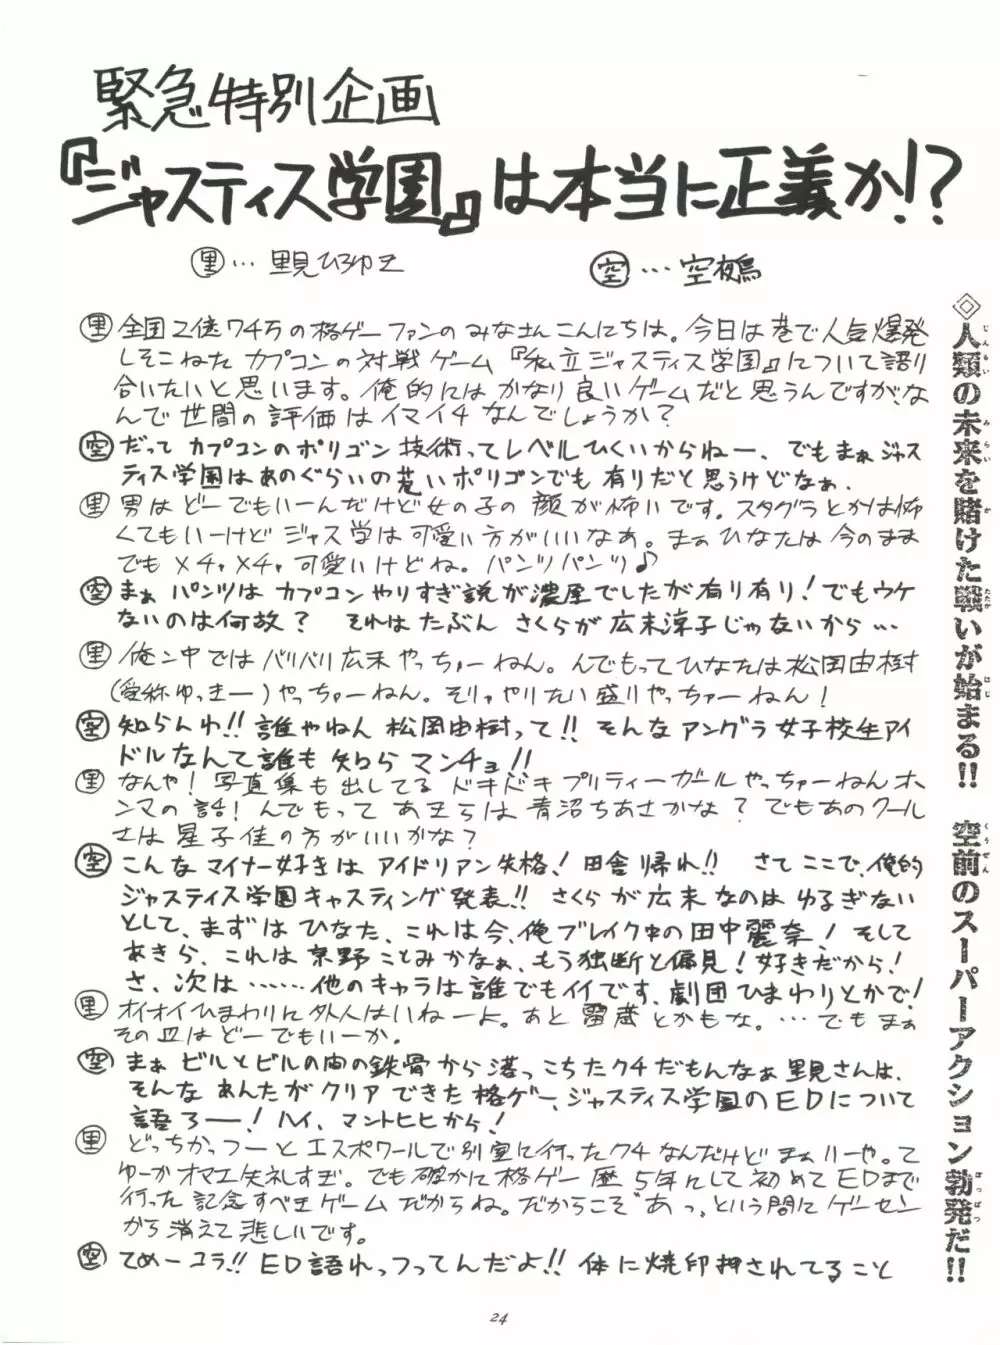 緊急特別企画
『ジャスティス学園』は本当に正義か!?
里…里見ひろゆき
空…空夜鳥
里 全国2億74万の格ゲーファンのみなさんこんにちは。今日は巷で人気爆発
しそこねたカプコンの対戦ゲーム『私立ジャスティス学園』について語り
合いたいと思います。俺的にはかなり良いゲームだと思うんですが、な
んで世間の評価はイマイチなんでしょうか?
空 だってカプコンのポリゴン技術ってレベルひくいからねー、でもまぁジャス
ティス学園はあのぐらいの荒いポリゴンでも有りだと思うけどなぁ。
里 男はどーでもいーんだけど女の子の顔が怖いです。スタグラとかは怖
くてもいーけどジャス学は可愛い方がいいなあ。まぁひなたは今のまま
でもメチャメチャ可愛いけどね。パンツパンツ♪
空 まぁパンツはカプコンやりすぎ説が濃厚でしたが有り有り!でもウケ
ないのは何故? それはたぶんさくらが広末涼子じゃないから…
里 俺ン中ではバリバリ広末やっちゅーねん。んでもってひなたは松岡由樹
(愛称ゆっきー)やっちゅーねん。そりゃやりたい盛りやっちゅーねん!
空 知らんわ!!誰やねん松岡由樹って!!そんなアングラ女子校生アイ
ドルなんて誰も知らマンチョ!!
里 なんや!写真集も出してるドキドキプリティーガールやっちゅーねんホ
ンマの話!んでもってあきらは青沼ちあさかな?でもあのクール
さは星子佳の方がいいかな?
空 こんなマイナー好きはアイドリアン失格!田舎帰れ!! さてここで、俺的
ジャスティス学園キャスティング発表!!さくらが広末なのはゆるぎない
として、まずはひなた、これは今、俺ブレイク中の田中麗奈!そして
あきら、これは京野ことみかなぁ、もう独断と偏見!好きだから!
さ、次は……他のキャラは誰でもイイです、劇団ひまわりとかで!
里 オイオイひまわりに外人はいねーよ。あと雷蔵とかもな。…でもまぁ
その辺はどーでもいーか。
空 まぁビルとビルの間の鉄骨から落っこちたクチだもんなぁ里見さんは、
そんなあんたがクリアできた格ゲー、ジャスティス学園のEDについて
語ろー!ハイ、マントヒヒから!
里 どっちかっつーとエスポワールで別室に行ったクチなんだけどまぁいーや。て
ゆーかオマエ失礼すぎ。でも確かに格ゲー歴5年にして初めてEDまで
行った記念すべきゲームだからね。だからこそ“あっ、という間にゲーセン
から消えて悲しいです。
空 てめーコラ!!ED語れっつってんだよ!!体に焼印押されてること
◇人類の未来を賭けた戦いが始まる!! 空前のスーパーアクション勃発だ!!
24